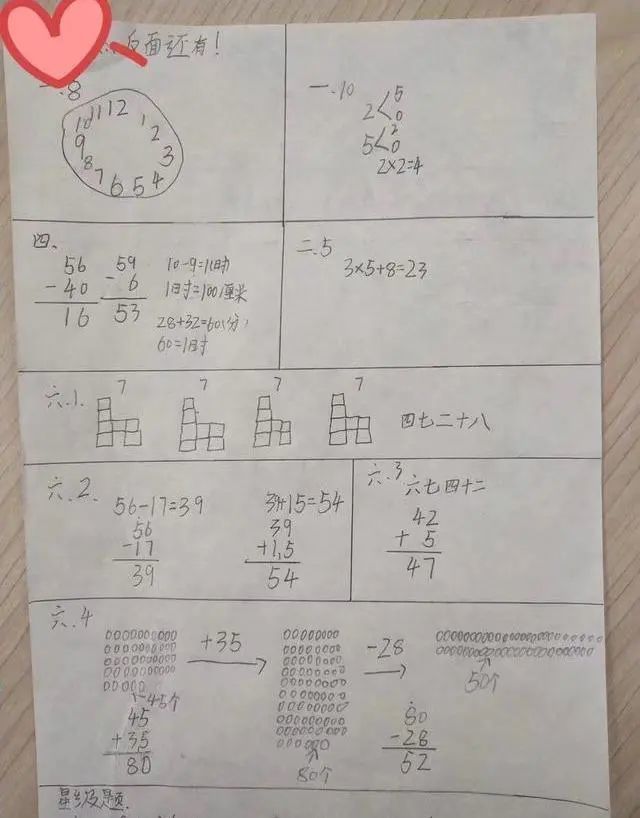 反面还有!
一.8
11 12 1
10 2
9 3
8 4
7 6 5
一.10
2< 5 0
5< 2 0
2×2=4
四、
56
-40
16
59
- 6
53
10-9=1(时)
1时=100厘米
28+32=60(分)
60=1时
二.5
3×5+8=23
六.1.
7 7 7 7
四七二十八
六.2
56-17=39
56
-17
39
39+15=54
39
+1,5
54
六.3
六七四十二
42
+ 5
47
六.4
+35
-28
45个
80个
50个
45
+35
80
80
-28
52
星级题.